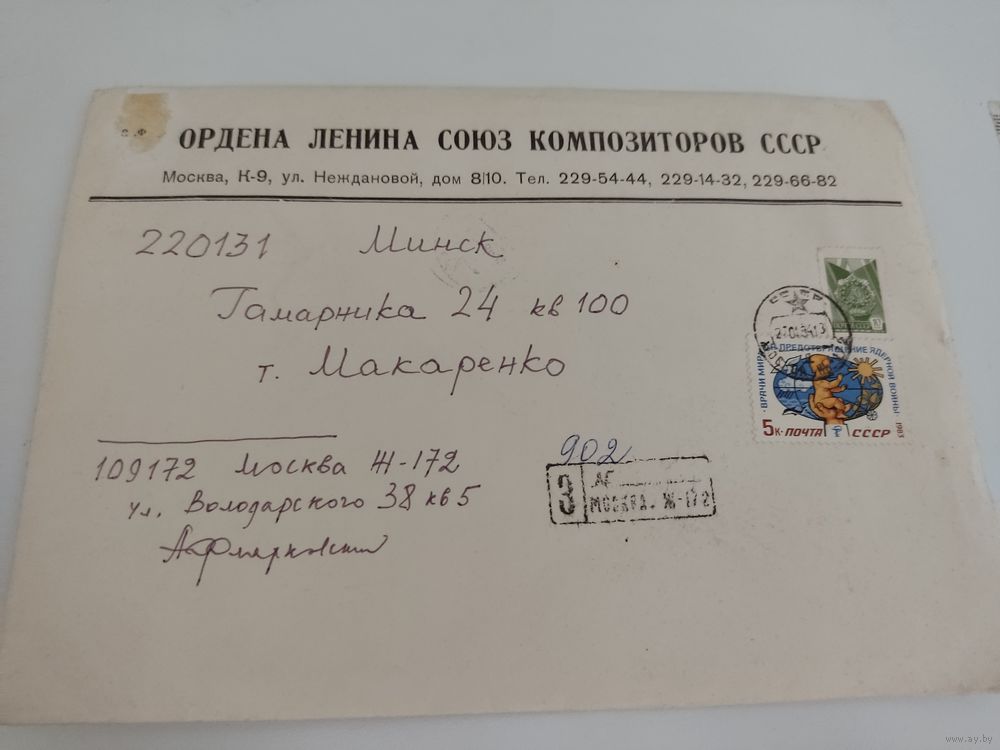 ОРДЕНА ЛЕНИНА СОЮЗ КОМПОЗИТОРОВ СССР
Москва, К-9, ул. Неждановой, дом 8/10. Тел. 229-54-44, 229-14-32, 229-66-82
220131 Минск
Гамарника 24 кв 100
т. Макаренко
СССР
ВРАЧИ МИРА ЗА ПРЕДОТВРАЩЕНИЕ ЯДЕРНОЙ ВОЙНЫ
1983
5к ПОЧТА СССР
109172 Москва Ж-172
ул. Володарского 38 кв 5
902
З
МОСКВА. Ж-172
www.ay.by